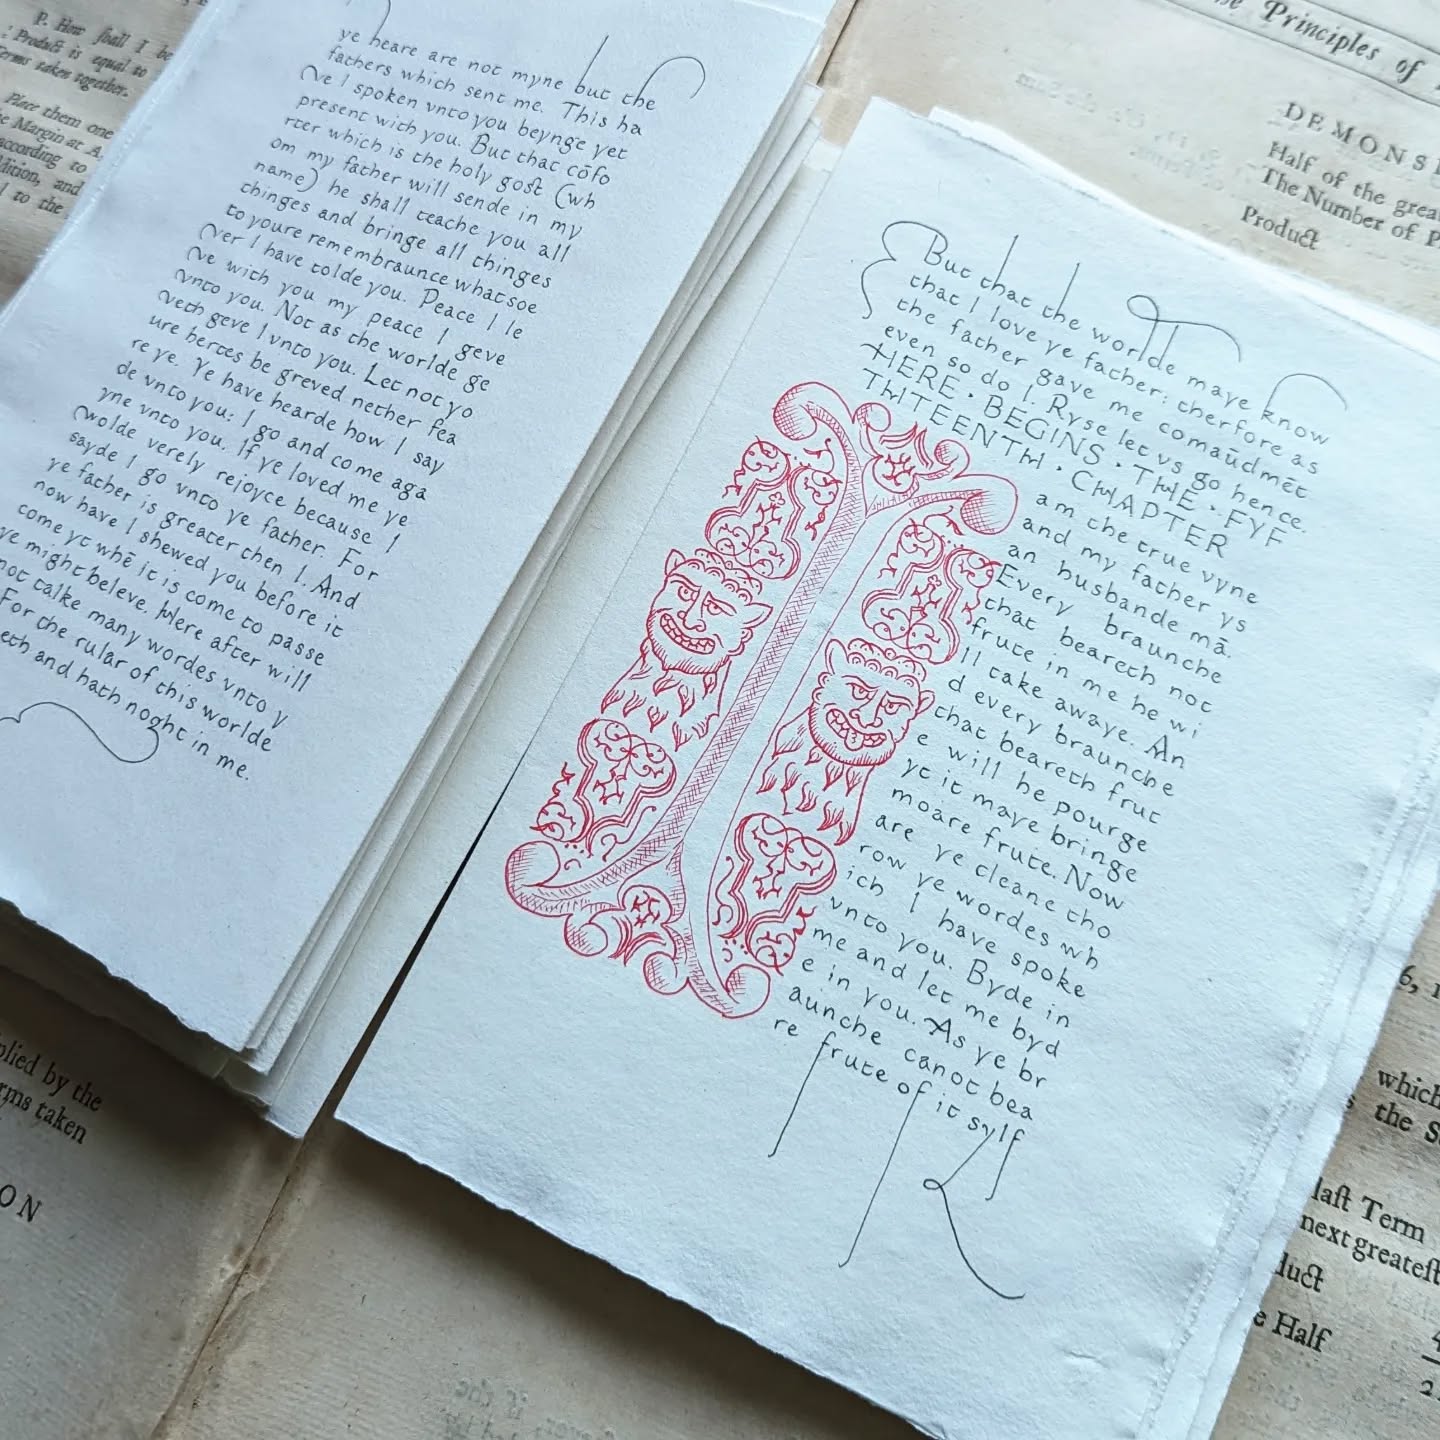 p. How ſhall I be
: Product is equal to
Terms taken together.
Place them one
he Margin at A,
according to
ddition, and
d to the
ye heare are not myne but the
fathers which sent me. This ha
ve I spoken vnto you beynge yet
present with you. But that cōfo
rter which is the holy gost (wh
om my father will sende in my
name) he shall teache you all
thinges and bringe all thinges
to youre remembraunce whatsoe
ver I have tolde you. Peace I le
ve with you my peace I geve
vnto you. Not as the worlde ge
veth geve I vnto you. Let not yo
ure hertes be greved nether fea
re ye. Ye have hearde how I say
de vnto you: I go and come aga
yne vnto you. If ye loved me ye
wolde verely rejoyce because I
sayde I go vnto ye father. For
ye father is greater then I. And
now have I shewed you before it
come yt whē it is come to passe
ye might beleve. Here after will
not talke many wordes vnto y
For the rular of this worlde
eth and hath noght in me.
But that the worlde maye know
that I love ye father: therfore as
the father gave me comaūdmēt
even so do I. Ryse let vs go hence.
HERE · BEGINS · THE · FYF
THTEENTH · CHAPTER
I
am the true vyne
and my father ys
an husbande mā.
Every braunche
that beareth not
frute in me he wi
ll take awaye. An
d every braunche
that beareth frut
e will he pourge
yt it maye bringe
moare frute. Now
are ye cleane tho
row ye wordes wh
ich I have spoke
vnto you. Byde in
me and let me byd
e in you. As ye br
aunche canot bea
re frute of it sylf
he Principles of
DEMONS
Half of the grea
The Number of P
Product
plied by the
rms taken
ON
6,
which
the S
laſt Term
next greateſt
duct
e Half